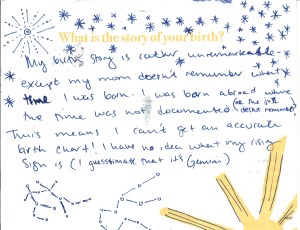 What is the story of your birth?
My birth story is rather unremarkable -
except my mom doesn't remember what
time I was born. I was born abroad where
the time was not documented (or the
doesn't remember)
This means I can't get an accurate
birth chart! I have no idea what my rising
sign is (I guesstimate that it's Gemini)